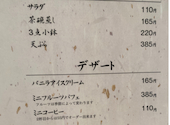 サラダ 110円
茶碗蒸し 165円
3点小鉢 220円
天ぷら 385円
デザート
バニラアイスクリーム 165円
ミニフルーツパフェ 385円
フルーツは季節によって変わります
ミニコーヒー 110円